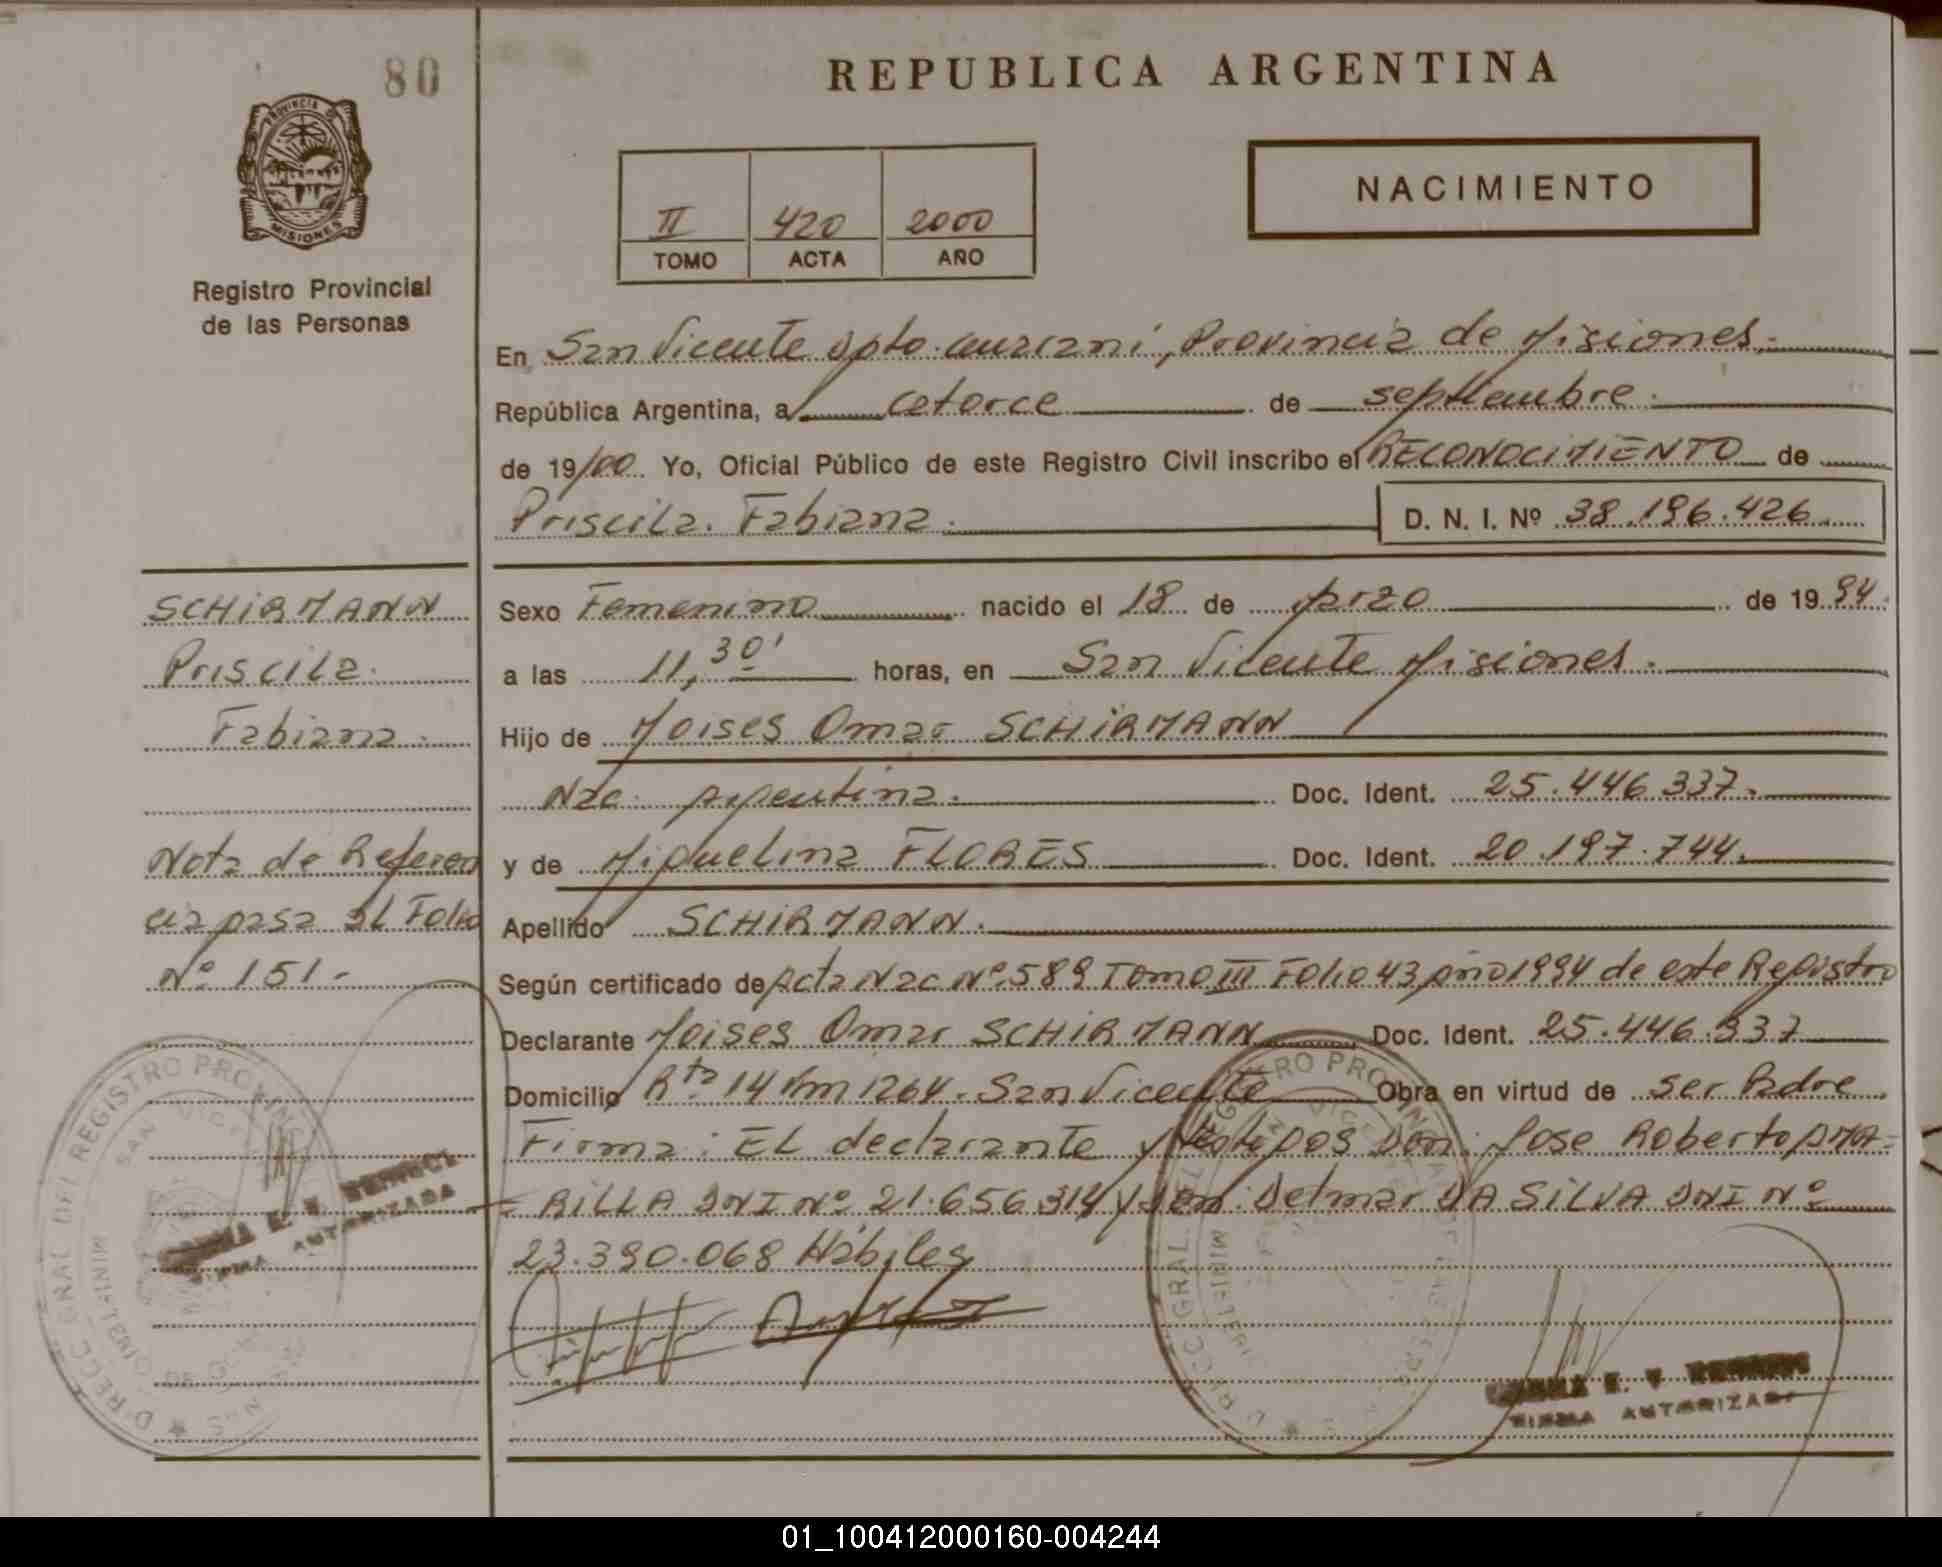 80
REPUBLICA ARGENTINA
PROVINCIA DE
MISIONES
Registro Provincial
de las Personas
II 420 2000
TOMO ACTA AÑO
NACIMIENTO
En San Vicente Dpto. Guaraní, Provincia de Misiones.
República Argentina, a catorce de septiembre.
de 19/00. Yo, Oficial Público de este Registro Civil inscribo el RECONOCIMIENTO de
Priscila. Fabiana. D. N. I. Nº 38.196.426
SCHiRMANN
Priscila.
Fabiana.
Nota de Referen
cia pasa al Folio
Nº 151.-
Sexo Femenino nacido el 18 de Marzo de 1994.
a las 11,30' horas, en San Vicente Misiones.
Hijo de Moises Omar SCHiRMANN
Nac. Argentina. Doc. Ident. 25.446.337.
y de Miguelina FLORES Doc. Ident. 20.197.744.
Apellido SCHiRMANN.
Según certificado de Acta Nac Nº 589 Tomo III Folio 43 Año 1994 de este Registro
Declarante Moises Omar SCHiRMANN Doc. Ident. 25.446.337
Domicilio Rta 14 Km 1264. San Vicente Obra en virtud de ser Padre
Firma: EL declarante y testigos Don: Jose Roberto AMA=
=RiLLA DNI Nº 21.656.314 y Don: Delmar DA SiLVA DNI Nº
23.390.068 Hábiles
DIRECC. GRAL. DEL REGISTRO PROVINC
SAN VICENTE
FIRMA AUTORIZADA
DIRECC. GRAL. DEL REGISTRO PROVINCIAL DE LAS PERSONAS
FIRMA AUTORIZADA
01_100412000160-004244